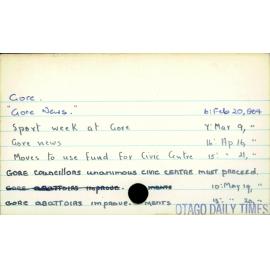 Gore.
"Gore News." 6: Feb 20, 1964
Sport week at Gore Mar 9, "
Gore news 16: Ap 16, "
Moves to use Fund For Civic Centre 15: " 21, "
GORE COUNCILLORS UNANIMOUS CIVIC CENTRE MUST PROCEED.
GORE ABATTOIRS IMPROVE MENTS 10: May 19, "
GORE ABATTOIRS IMPROVE. MENTS "
OTAGO DAILY TIMES